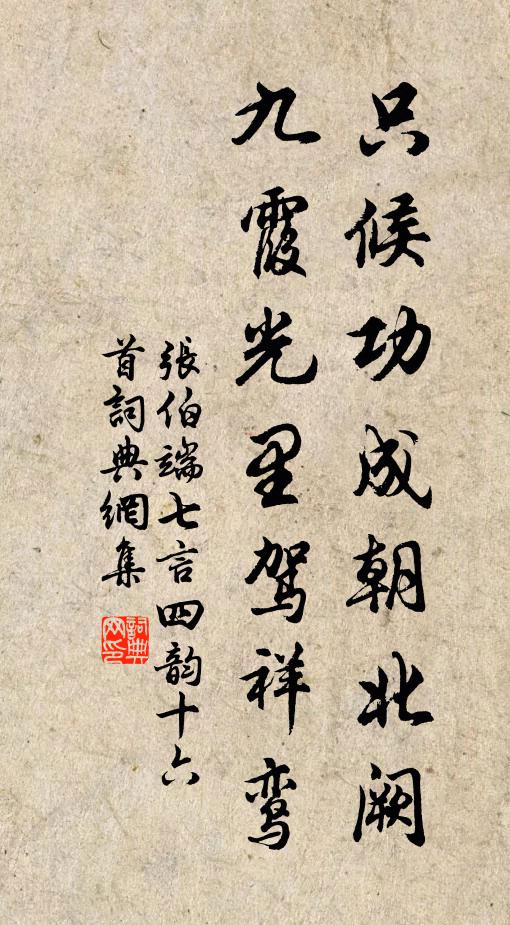 只候功成朝北阙
九霞光里驾祥鸾
張伯端七言四韵十六
首詞典網集
詞典
网印